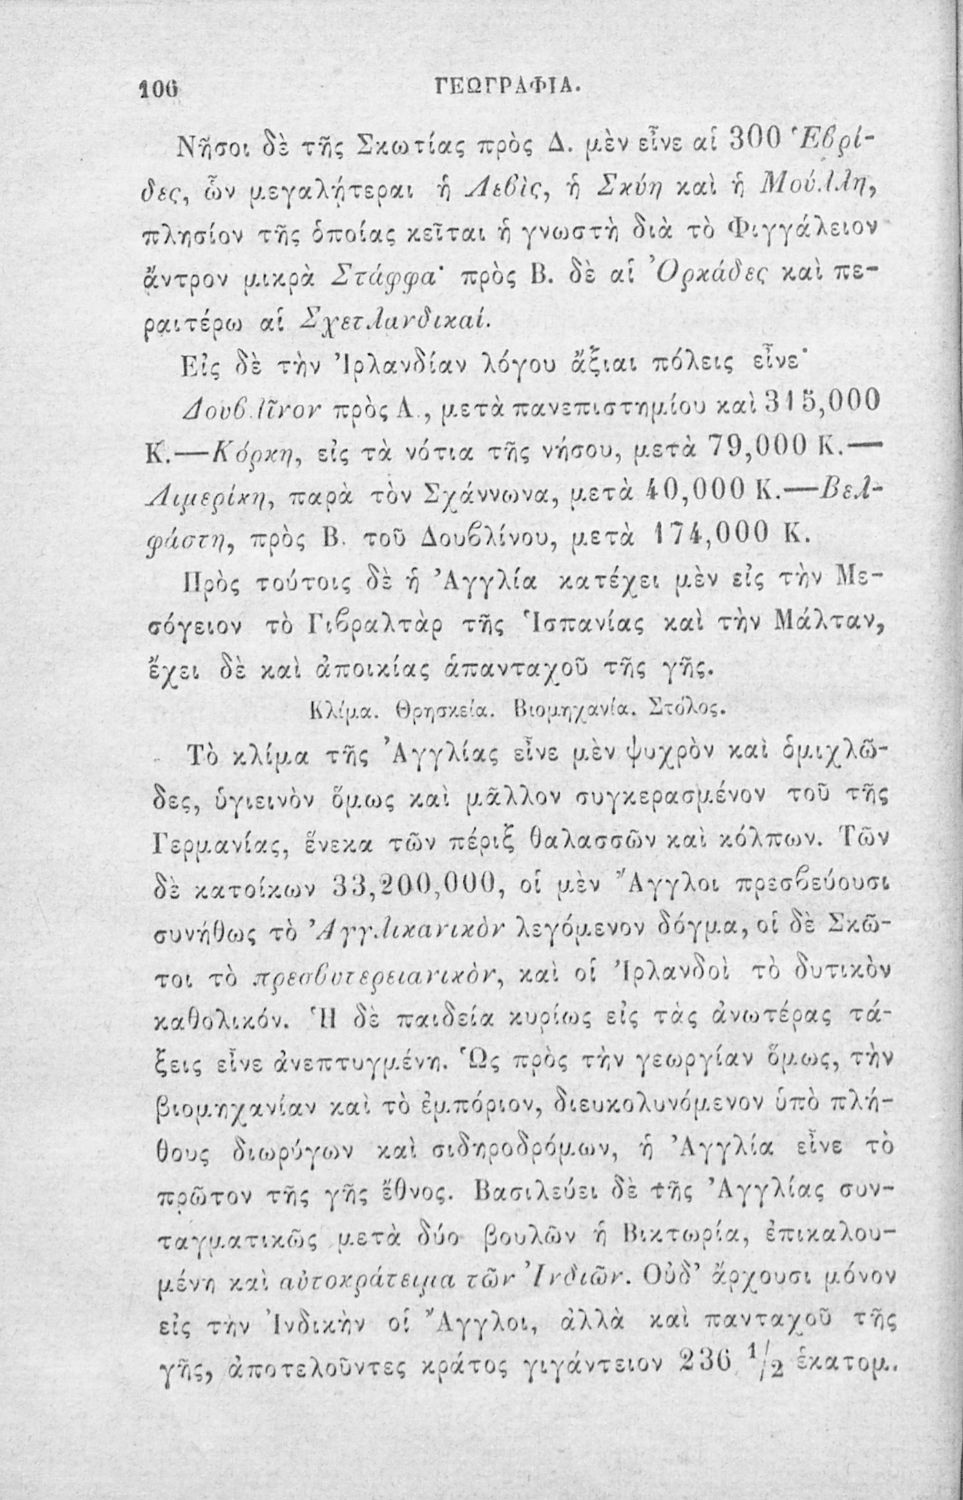 106 ΓΕΩΓΡΑΦΙΑ.
Νῆσοι δὲ τῆς Σκωτίας πρὸς Δ. μὲν εἶνε αἱ 300 Ἑβρί-
δες, ὧν μεγαλήτεραι ἡ Λεβὶς, ἡ Σκύη καὶ ἡ Μούλλη,
πλησίον τῆς ὁποίας κεῖται ἡ γνωστὴ διὰ τὸ Φιγγάλειον
ἄντρον μικρὰ Στάφφα· πρὸς Β. δὲ αἱ Ὀρκάδες καὶ πε-
ραιτέρω αἱ Σχετλανδικαί.
Εἰς δὲ τὴν Ἰρλανδίαν λόγου ἄξιαι πόλεις εἶνε·
Δουβλῖνον πρὸς Α., μετὰ πανεπιστημίου καὶ 315,000
Κ.—Κόρκη, εἰς τὰ νότια τῆς νήσου, μετὰ 79,000 Κ.—
Λιμερίκη, παρὰ τὸν Σχάννωνα, μετὰ 40,000 Κ.—Βελ-
φάστη, πρὸς Β. τοῦ Δουβλίνου, μετὰ 174,000 Κ.
Πρὸς τούτοις δὲ ἡ Ἀγγλία κατέχει μὲν εἰς τὴν Με-
σόγειον τὸ Γιβραλτὰρ τῆς Ἱσπανίας καὶ τὴν Μάλταν,
ἔχει δὲ καὶ ἀποικίας ἁπανταχοῦ τῆς γῆς.
Κλίμα. Θρησκεία. Βιομηχανία. Στόλος.
Τὸ κλίμα τῆς Ἀγγλίας εἶνε μὲν ψυχρὸν καὶ ὁμιχλῶ-
δες, ὑγιεινὸν ὅμως καὶ μᾶλλον συγκερασμένον τοῦ τῆς
Γερμανίας, ἕνεκα τῶν πέριξ θαλασσῶν καὶ κόλπων. Τῶν
δὲ κατοίκων 33,200,000, οἱ μὲν Ἄγγλοι πρεσβεύουσι
συνήθως τὸ Ἀγγλικανικὸν λεγόμενον δόγμα, οἱ δὲ Σκῶ-
τοι τὸ πρεσβυτερειανικὸν, καὶ οἱ Ἰρλανδοὶ τὸ δυτικὸν
καθολικόν. Ἡ δὲ παιδεία κυρίως εἰς τὰς ἀνωτέρας τά-
ξεις εἶνε ἀνεπτυγμένη. Ὡς πρὸς τὴν γεωργίαν ὅμως, τὴν
βιομηχανίαν καὶ τὸ ἐμπόριον, διευκολυνόμενον ὑπὸ πλή-
θους διωρύγων καὶ σιδηροδρόμων, ἡ Ἀγγλία εἶνε τὸ
πρῶτον τῆς γῆς ἔθνος. Βασιλεύει δὲ τῆς Ἀγγλίας συν-
ταγματικῶς μετὰ δύο βουλῶν ἡ Βικτωρία, ἐπικαλου-
μένη καὶ αὐτοκράτειρα τῶν Ἰνδιῶν. Οὐδ’ ἄρχουσι μόνον
εἰς τὴν Ἰνδικὴν οἱ Ἄγγλοι, ἀλλὰ καὶ πανταχοῦ τῆς
γῆς, ἀποτελοῦντες κράτος γιγάντειον 236 1/2 ἑκατομ.